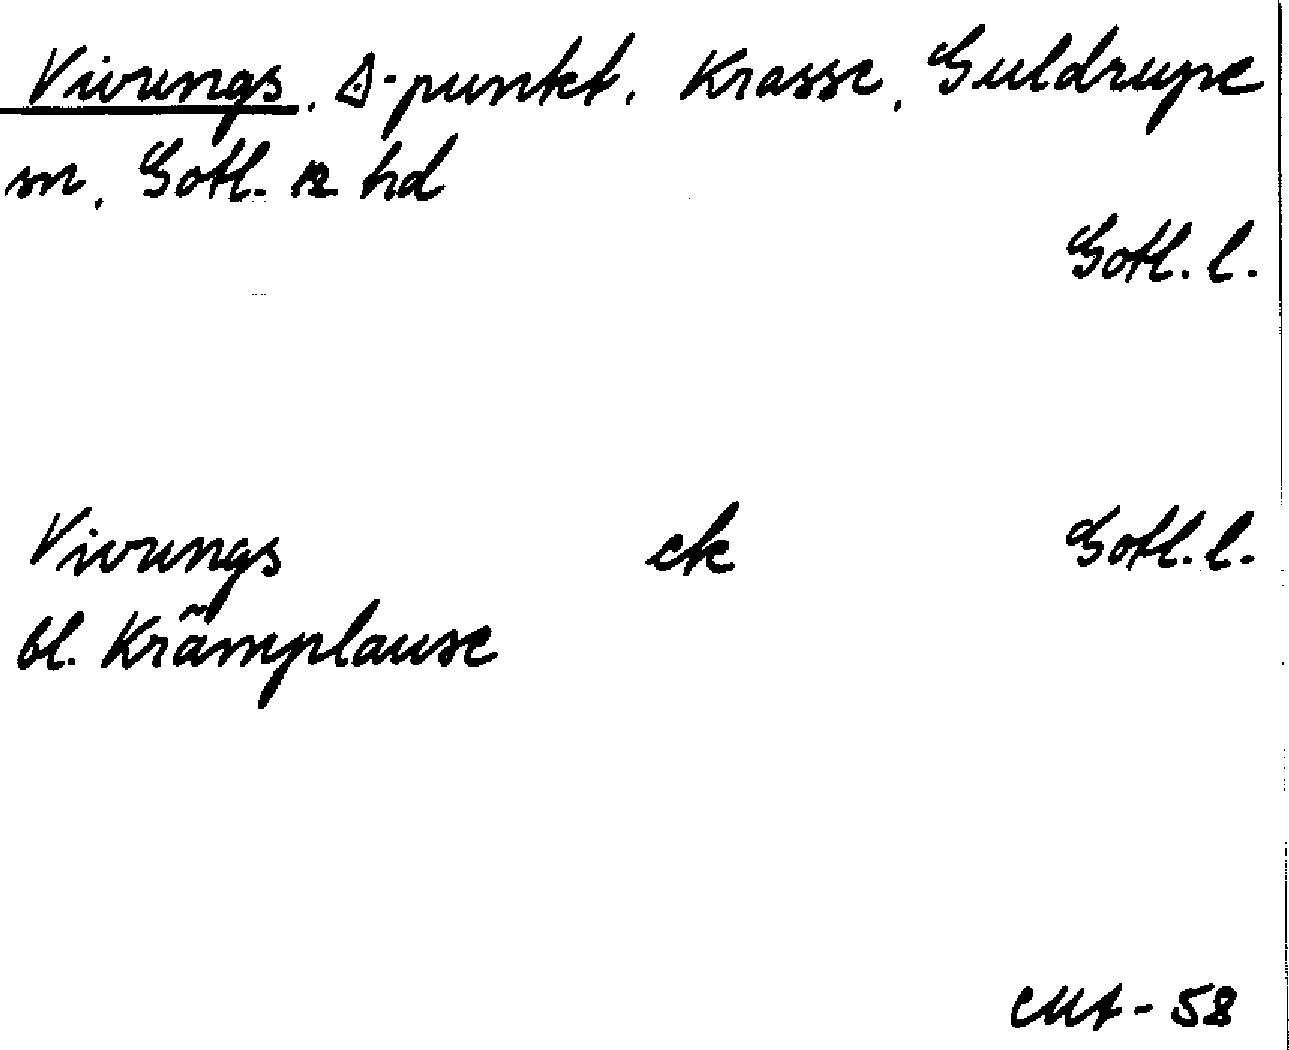 Vivungs. △-punkt. Krasse, Guldrupe
sn, Gotl. n hd
Gotl. l.
Vivungs ek Gotl. l.
bl. Krämplause
CMA-58